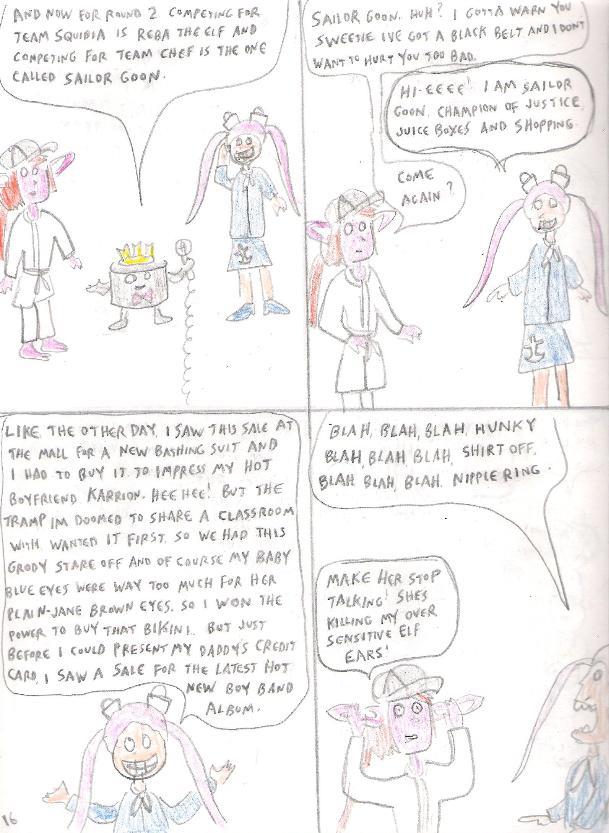 AND NOW FOR ROUND 2 COMPETING FOR
TEAM SQUIBIA IS REBA THE ELF AND
COMPETING FOR TEAM CHEF IS THE ONE
CALLED SAILOR GOON.
SAILOR GOON. HUH? I GOTTA WARN YOU
SWEETIE I'VE GOT A BLACK BELT AND I DON'T
WANT TO HURT YOU TOO BAD.
HI-EEEE! I AM SAILOR
GOON. CHAMPION OF JUSTICE,
JUICE BOXES AND SHOPPING.
COME
AGAIN?
LIKE THE OTHER DAY, I SAW THIS SALE AT
THE MALL FOR A NEW BASHING SUIT AND
I HAD TO BUY IT TO IMPRESS MY HOT
BOYFRIEND KARRION. HEE HEE! BUT THE
TRAMP IM DOOMED TO SHARE A CLASSROOM
WITH WANTED IT FIRST. SO WE HAD THIS
GRODY STARE OFF AND OF COURSE MY BABY
BLUE EYES WERE WAY TOO MUCH FOR HER
PLAIN-JANE BROWN EYES. SO I WON THE
POWER TO BUY THAT BIKINI. BUT JUST
BEFORE I COULD PRESENT MY DADDY'S CREDIT
CARD, I SAW A SALE FOR THE LATEST HOT
NEW BOY BAND
ALBUM.
BLAH, BLAH, BLAH, HUNKY
BLAH, BLAH, BLAH, SHIRT OFF,
BLAH, BLAH, BLAH, NIPPLE RING.
MAKE HER STOP
TALKING! SHES
KILLING MY OVER
SENSITIVE ELF
EARS!
16